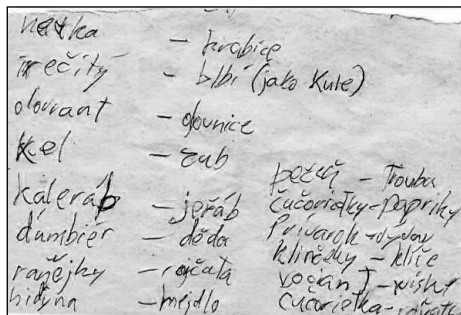 – krabice
irečitý – blbí (jako Kule)
olovrant – olovnice
kel – zub
kaleráb – jeřáb
ďumbier – děda
raňejky – rajčata
hidyna – mejdlo
pečeň – Trouba
čučoriotky – papriky
Prívarok – vývar
klinčeky – klíče
čučorietka –